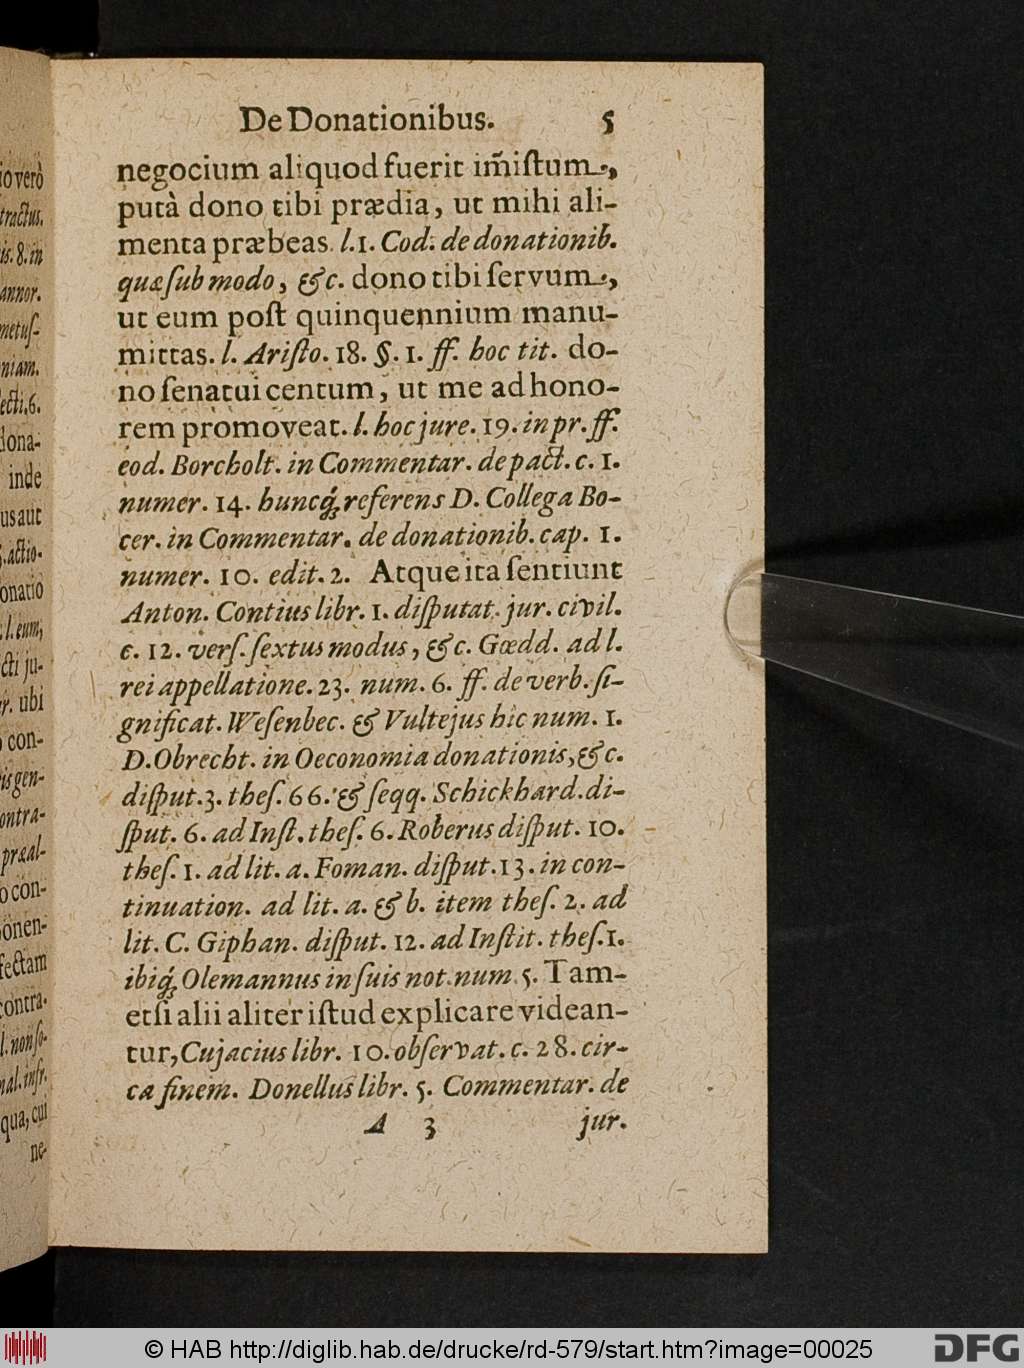 De Donationibus. 5
negocium aliquod fuerit im̃iſtum,
putà dono tibi prædia, ut mihi ali-
menta præbeas. l.1. Cod. de donationib.
quæ ſub modo, &c. dono tibi ſervum,
ut eum poſt quinquennium manu-
mittas. l. Ariſto. 18. §. 1. ff. hoc tit. do-
no ſenatui centum, ut me ad hono-
rem promoveat. l. hoc jure. 19. in pr. ff.
eod. Borcholt. in Commentar. de pact. c. 1.
numer. 14. huncq́; referens D. Collega Bo-
cer. in Commentar. de donationib. cap. 1.
numer. 10. edit. 2. Atque ita ſentiunt
Anton. Contius libr. 1. diſputat. jur. civil.
c. 12. verſ. ſextus modus, &c. Gœdd. ad l.
rei appellatione. 23. num. 6. ff. de verb. ſi-
gnificat. Weſenbec. & Vultejus hic num. 1.
D. Obrecht. in Oeconomia donationis, &c.
diſput. 3. theſ. 66. & ſeqq. Schickhard. di-
ſput. 6. ad Inſt. theſ. 6. Roberus diſput. 10.
theſ. 1. ad lit. a. Foman. diſput. 13. in con-
tinuation. ad lit. a. & b. item theſ. 2. ad
lit. C. Giphan. diſput. 12. ad Inſtit. theſ. 1.
ibiq́; Olemannus in ſuis not. num. 5. Tam-
etſi alii aliter iſtud explicare videan-
tur, Cujacius libr. 10. obſervat. c. 28. cir-
ca finem. Donellus libr. 5. Commentar. de
A 3 jur.
io verò
tractus.
is. 8. in
annor.
metuſ-
niam.
ecti. 6.
dona-
inde
us aut
actio-
onatio
l. eum,
cti ju-
r. ubi
con-
is gen-
ontra-
præal-
o con-
onen-
fectam
contra-
l. non ſo-
nal. infr.
qua, cui
ne-
© HAB http://diglib.hab.de/drucke/rd-579/start.htm?image=00025
DFG